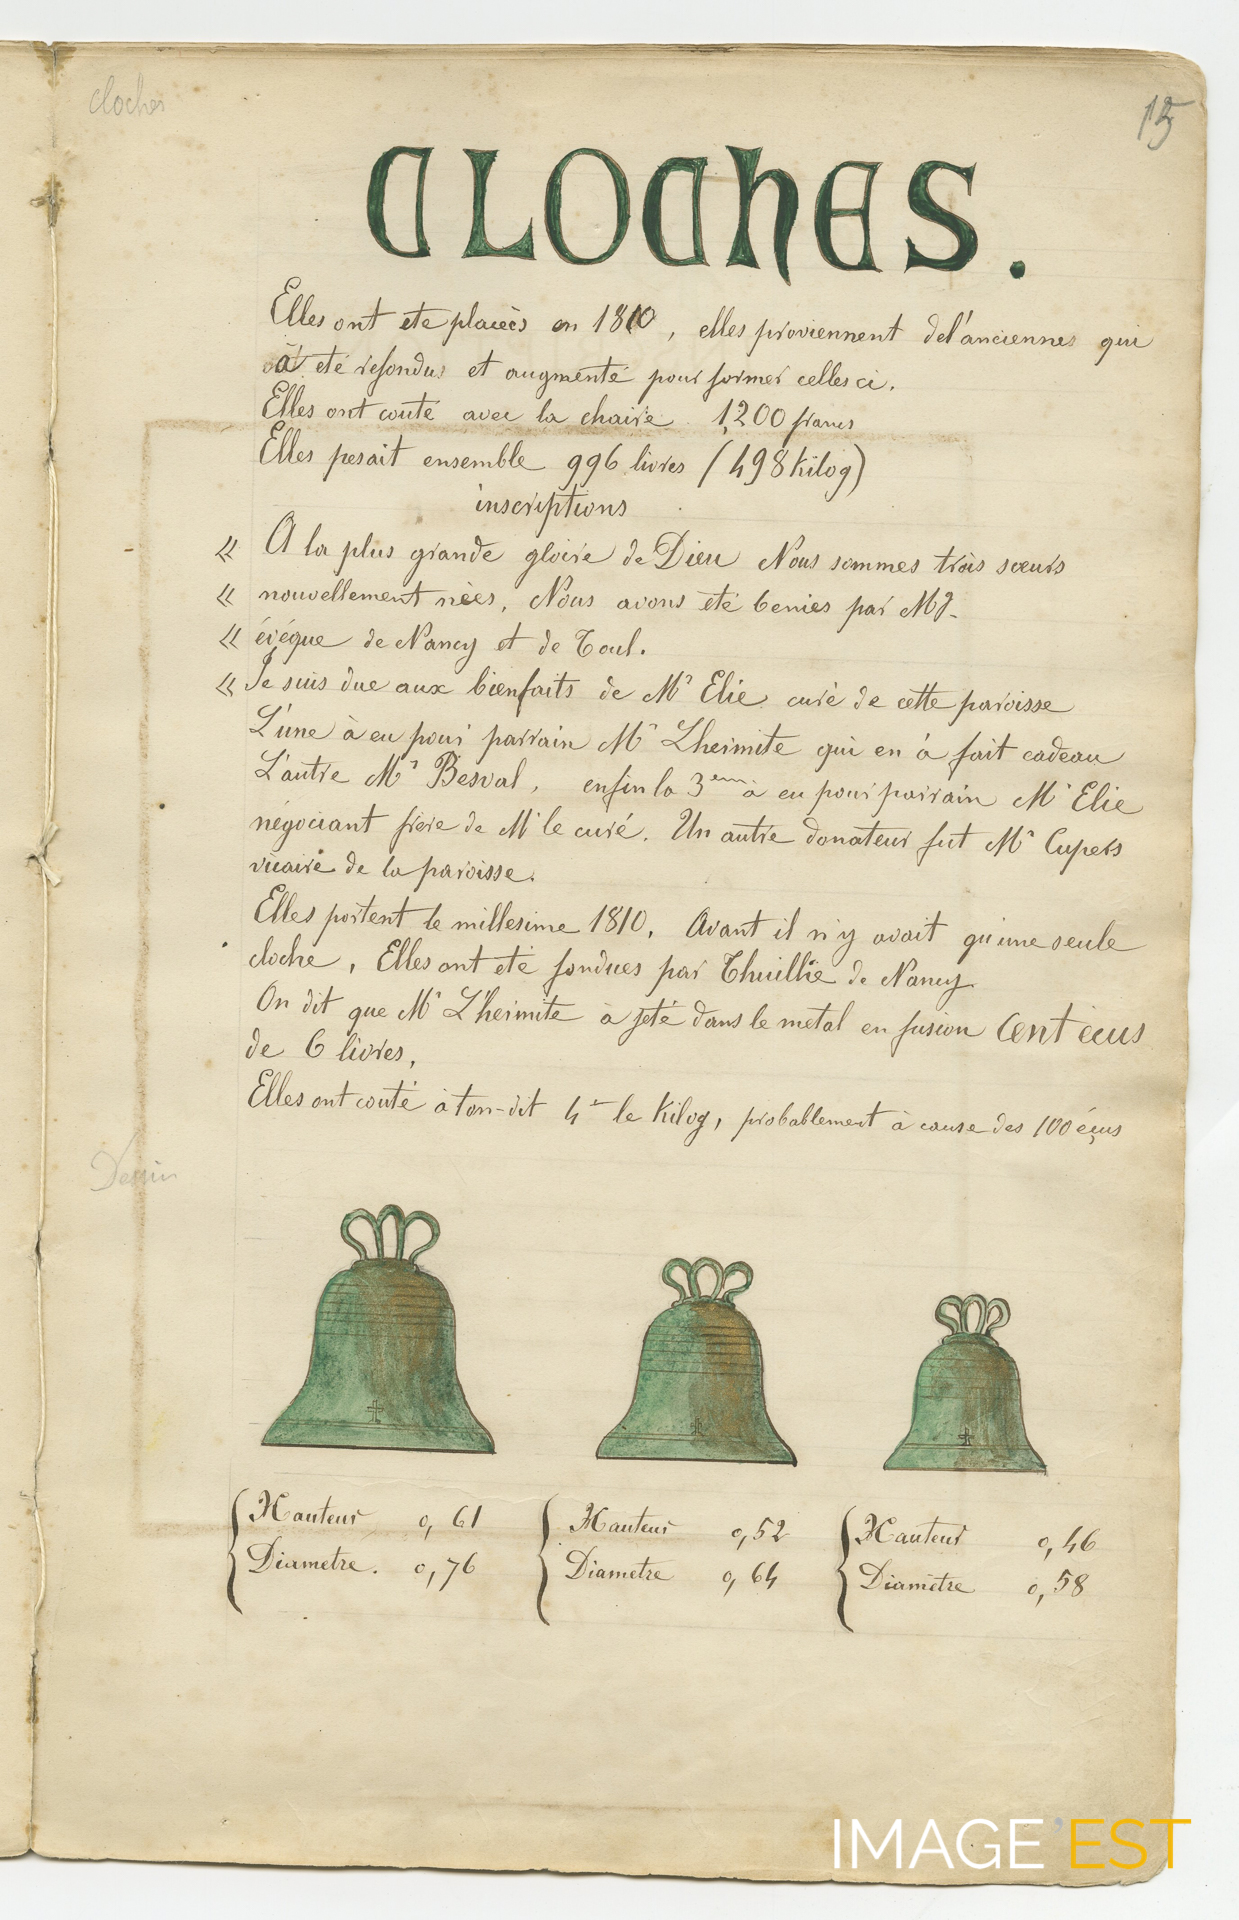 cloches
15
CLOCHES.
Elles ont ete placeès en 1810, elles proviennent del'anciennes qui
à eté refondus et augmenté pour former celles ci.
Elles ont coute avec la chaire 1,200 francs
Elles pesait ensemble 996 livres (498 Kilog)
inscriptions
« A la plus grande gloire de Dieu Nous sommes trois sœurs
« nouvellement nèes, Nous avons eté benies par Mg.
« évéque de Nancy et de Toul.
« Je suis due aux bienfaits de Mr Elie curé de cette paroisse
L'une à eu pour parrain Mr Lhermite qui en à fait cadeau
L'autre Mr Besval, enfin la 3eme à eu pour parrain Mr Elie
négociant frere de Mr le curé. Un autre donateur fut Mr Cupers
vicaire de la paroisse.
Elles portent le millesime 1810. Avant il n'y avait qu'une seule
cloche, Elles ont eté fondues par Thuillié de Nancy
On dit que Mr L'hermite à jeté dans le metal en fusion Cent écus
de 6 livres,
Elles ont couté à ton-dit 4 le Kilog, probablement à cause des 100 écus
Dessin
Hauteur 0,61
Diametre. 0,76
Hauteur 0,52
Diametre 0,64
Hauteur 0,46
Diamètre 0,58
IMAGE'EST